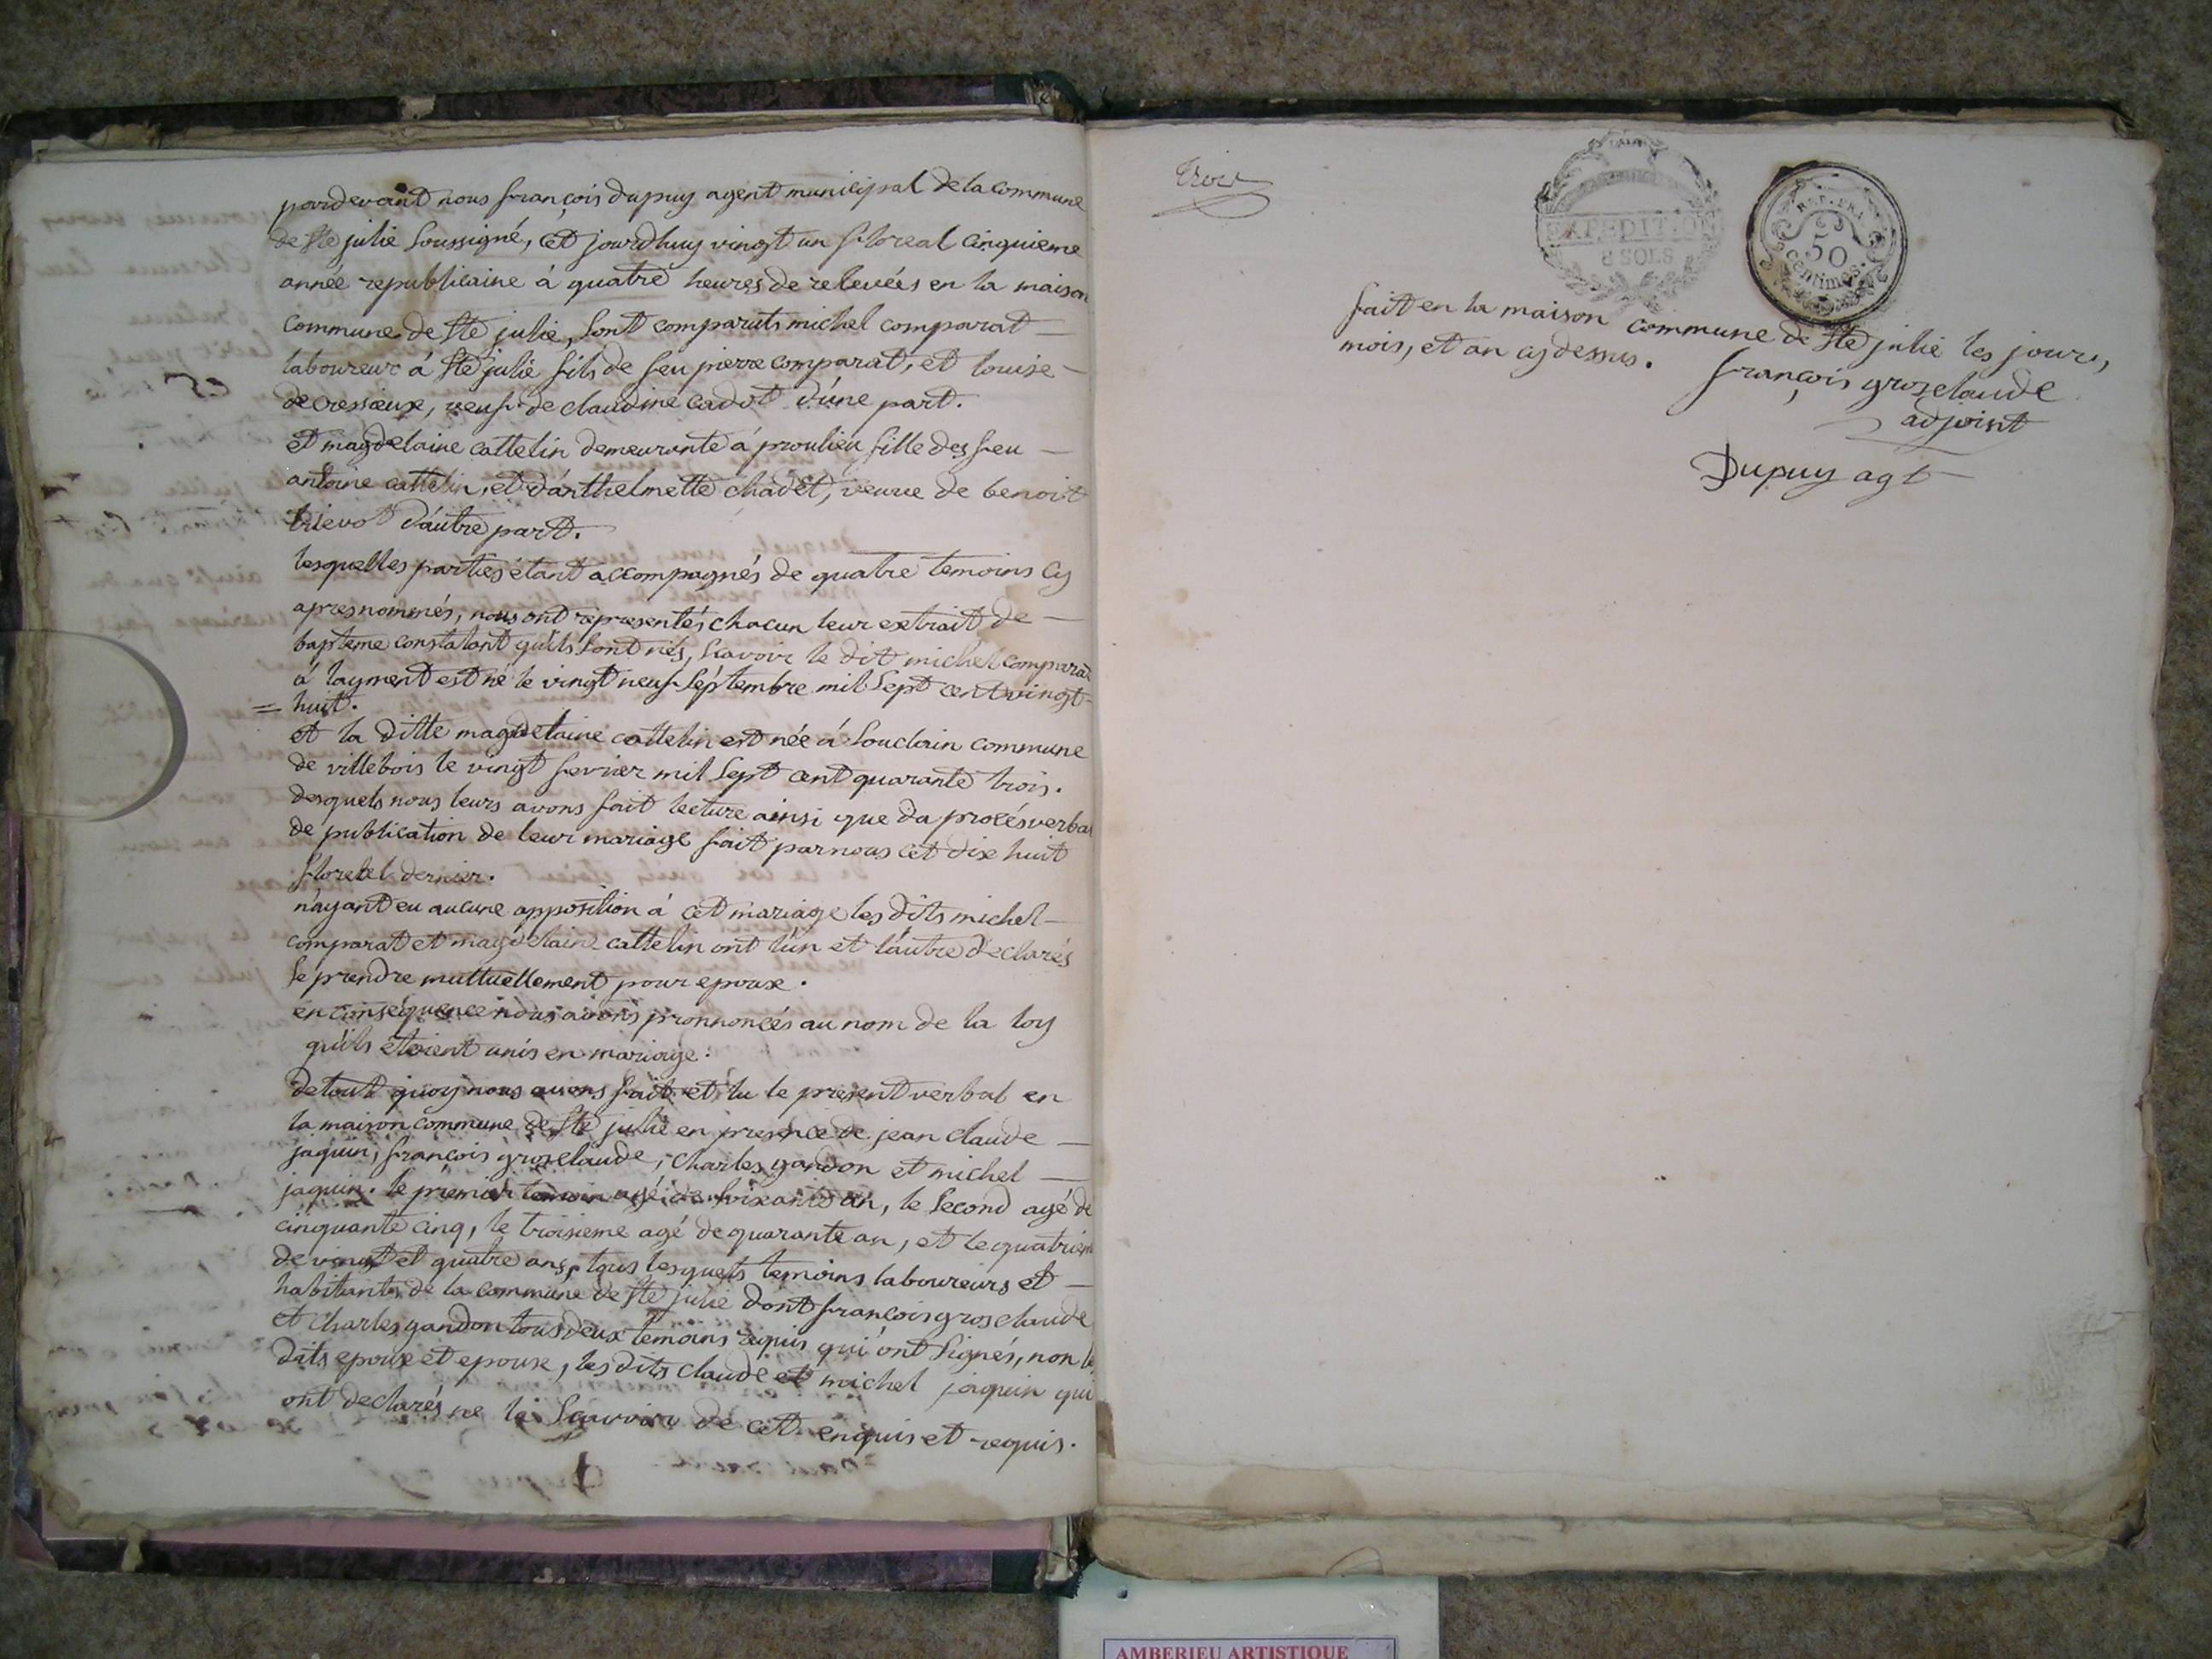 pardevant nous françois dupuy agent municipal de la commune
de Ste julie soussigné, cet jourdhuy vingt un floreal cinquieme
année republicaine à quatre heures de relevées en la maison
commune de Ste julie, sont comparuts michel comparat
laboureur à Ste julie fils de feu pierre comparat, et louise
decressieux, veuf de claudine cadot d'une part.
et magdelaine cattelin demeurante à proulieu fille des feu
antoine cattelin, et d'anthelmette chadet, veuve de benoit
trievot d'autre part.
lesquelles parties étant accompagnés de quatre temoins cy
apres nommés, nous ont representés chacun leur extrait de
bapteme constatant qu'ils sont nés, scavoir le dit michel comparat
á layment est né le vingt neuf septembre mil sept cent vingt
= huit.
et la ditte magdelaine cattelin est née á Souclain commune
de villebois le vingt fevrier mil sept cent quarante trois.
desquels nous leurs avons fait lecture ainsi que du procés verbal
de publication de leur mariage fait par nous cet dix huit
floreal dernier.
n'ayant eu aucune opposition à cet mariage les dits michel
comparat et magdelaine cattelin ont l'un et l'autre declarés
se prendre muttuellement pour epoux.
en consequence nous avons pronnoncés au nom de la loy
qu'ils étoient unis en mariage.
de tout quoy nous avons fait et lu le present verbal en
la maison commune de Ste julie en presence de jean claude
jaquin, françois grosclaude, charles gandon et michel
jaquin. le premier temoin agé de soixante an, le second agé de
cinquante cinq, le troisieme agé de quarante an, et le quatriem
de vingt et quatre ans, tous lesquels temoins laboureurs et
habitants de la commune de Ste julie dont françois grosclaude
et charles gandon tous deux temoins requis qui ont signés, non les
dits epoux et epouse, les dits claude et michel jaquin qui
ont declarés ne le scavoir de cet enquis et requis.
EXPEDITION
8 SOLS
REP. FRA.
50
centimes.
fait en la maison commune de Ste julie les jour,
mois, et an cy dessus.
françois grosclaude
adjoint
Dupuy agt
AMBERIEU ARTISTIQUE